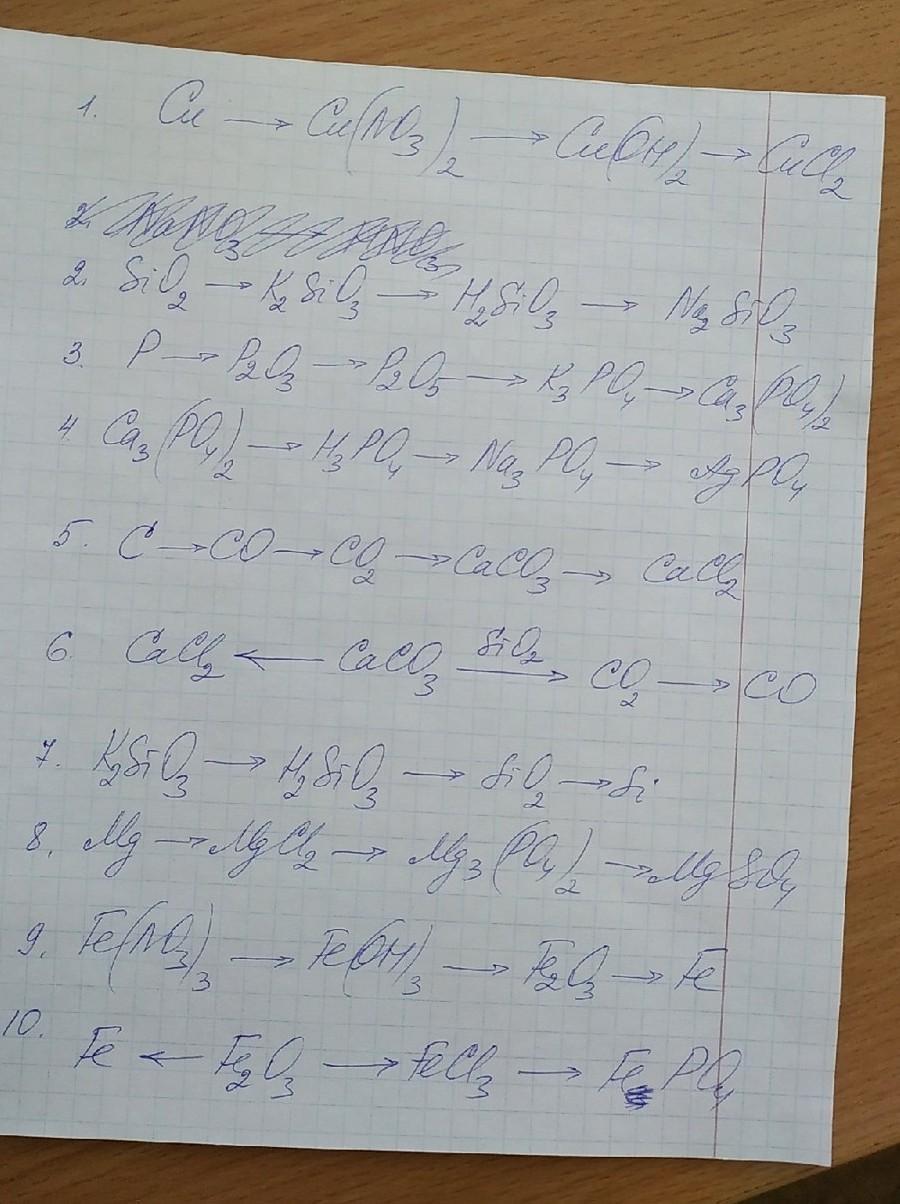 1. Cu → Cu(NO₃)₂ → Cu(OH)₂ → CuCl₂
2. SiO₂ → K₂SiO₃ → H₂SiO₃ → Na₂SiO₃
3. P → P₂O₃ → P₂O₅ → K₃PO₄ → Ca₃(PO₄)₂
4. Ca₃(PO₄)₂ → H₃PO₄ → Na₃PO₄ → AgPO₄
5. C → CO → CO₂ → CaCO₃ → CaCl₂
SiO₂
6. CaCl₂ ← CaCO₃ → CO₂ → CO
7. K₂SiO₃ → H₂SiO₃ → SiO₂ → Si
8. Mg → MgCl₂ → Mg₃(PO₄)₂ → MgSO₄
9. Fe(NO₃)₃ → Fe(OH)₃ → Fe₂O₃ → Fe
10. Fe ← Fe₂O₃ → FeCl₃ → FePO₄